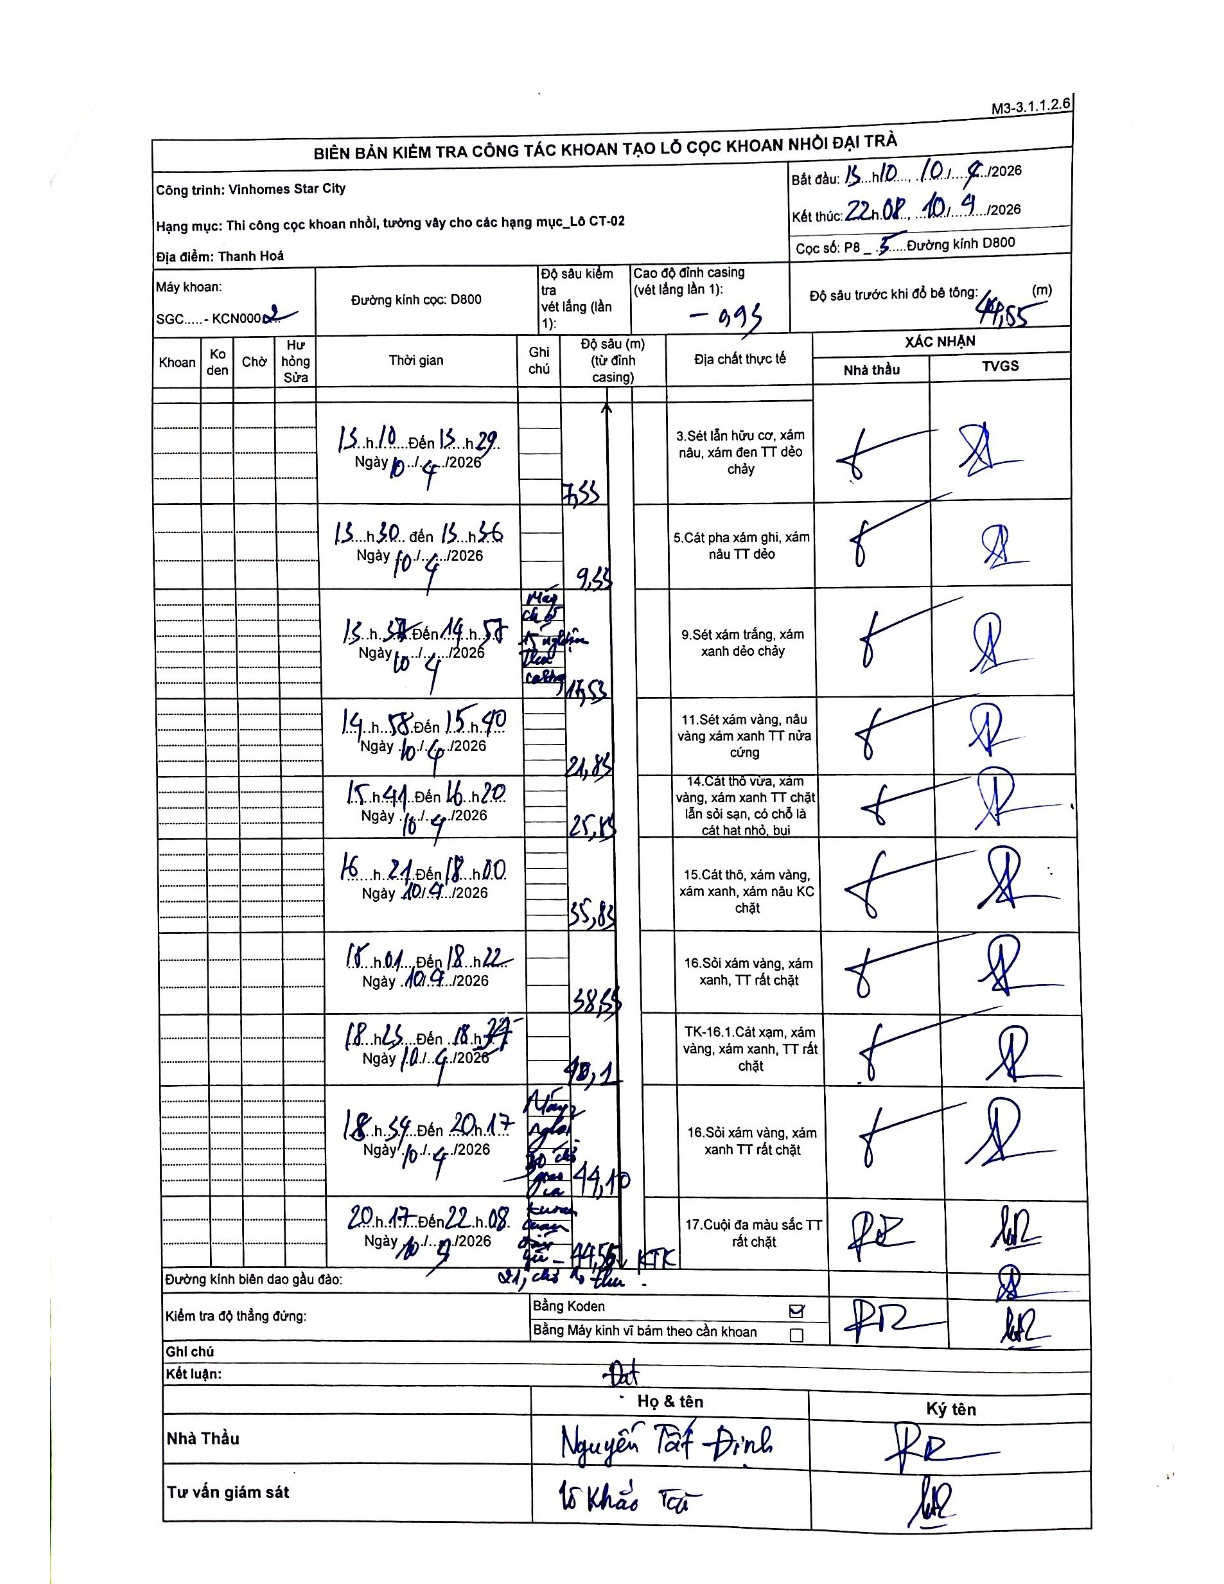 M3-3.1.1.2.6
BIÊN BẢN KIỂM TRA CÔNG TÁC KHOAN TẠO LỖ CỌC KHOAN NHỒI ĐẠI TRÀ
Công trình: Vinhomes Star City
Hạng mục: Thi công cọc khoan nhồi, tường vây cho các hạng mục_Lô CT-02
Địa điểm: Thanh Hoá
Bắt đầu: 13...h10..., .10./.4../2026
Kết thúc: 22h.08.., ...10./.4.../2026
Cọc số: P8_.5.....Đường kính D800
Máy khoan:
SGC.....- KCN0002
Đường kính cọc: D800
Độ sâu kiểm
tra
vét lắng (lần
1):
Cao độ đỉnh casing
(vét lắng lần 1):
Độ sâu trước khi đổ bê tông: 44,55 (m)
Khoan
Ko
den
Chờ
Hư
hỏng
Sửa
Thời gian
Ghi
chú
Độ sâu (m)
(từ đỉnh
casing)
Địa chất thực tế
XÁC NHẬN
Nhà thầu
TVGS
13..h.10....Đến 13..h 29
Ngày 10../.4../2026
7,53
3.Sét lẫn hữu cơ, xám
nâu, xám đen TT dẻo
chảy
13...h30.. đến 13..h36
Ngày 10./..4../2026
9,53
5.Cát pha xám ghi, xám
nâu TT dẻo
13..h.37.Đến 14.h.57
Ngày 10./.4../2026
Máy
chờ
nghiệm
thu
casing
17,53
9.Sét xám trắng, xám
xanh dẻo chảy
14..h..58.Đến 15.h.40
Ngày .10./.4../2026
21,83
11.Sét xám vàng, nâu
vàng xám xanh TT nửa
cứng
15..h.41..Đến 16..h.20
Ngày ..10./..4../2026
25,83
14.Cát thô vừa, xám
vàng, xám xanh TT chặt
lẫn sỏi sạn, có chỗ là
cát hạt nhỏ, bụi
16....h..21.Đến 18..h.00.
Ngày .10./.4.../2026
35,83
15.Cát thô, xám vàng,
xám xanh, xám nâu KC
chặt
18..h.01....Đến 18..h22..
Ngày .10/.4.../2026
38,53
16.Sỏi xám vàng, xám
xanh, TT rất chặt
18..h23....Đến .18.h.37
Ngày 10./..4../2026
40,1
TK-16.1.Cát xạm, xám
vàng, xám xanh, TT rất
chặt
18..h..39.Đến 20h.17
Ngày 10./..4../2026
Máy
nghỉ
30 chờ
giao
ca
44,10
16.Sỏi xám vàng, xám
xanh TT rất chặt
20.h.17..Đến22.h.08.
Ngày 10./...4./2026
44,55 KTK
17.Cuội đa màu sắc TT
rất chặt
Đường kính biên dao gầu đào:
Kiểm tra độ thẳng đứng:
Bằng Koden ☑
Bằng Máy kinh vĩ bám theo cần khoan ☐
Ghi chú
Kết luận: Đạt
Họ & tên
Ký tên
Nhà Thầu
Nguyễn Tất Định
Tư vấn giám sát